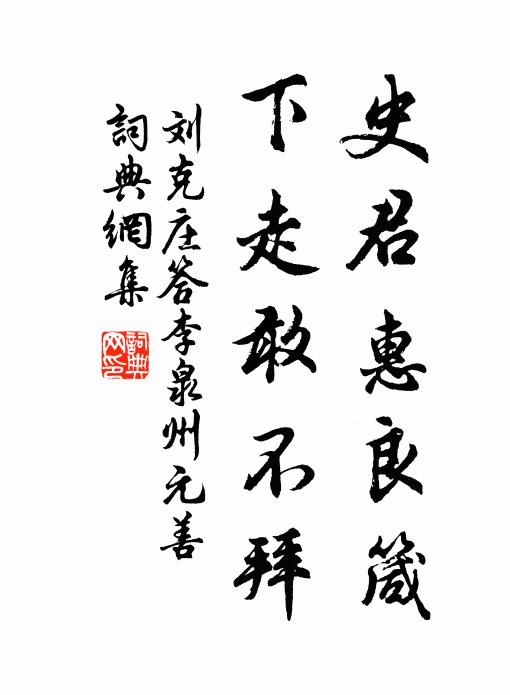 史君惠良箴
下走敢不拜
刘克庄答李泉州元善
詞典網集
詞典网印